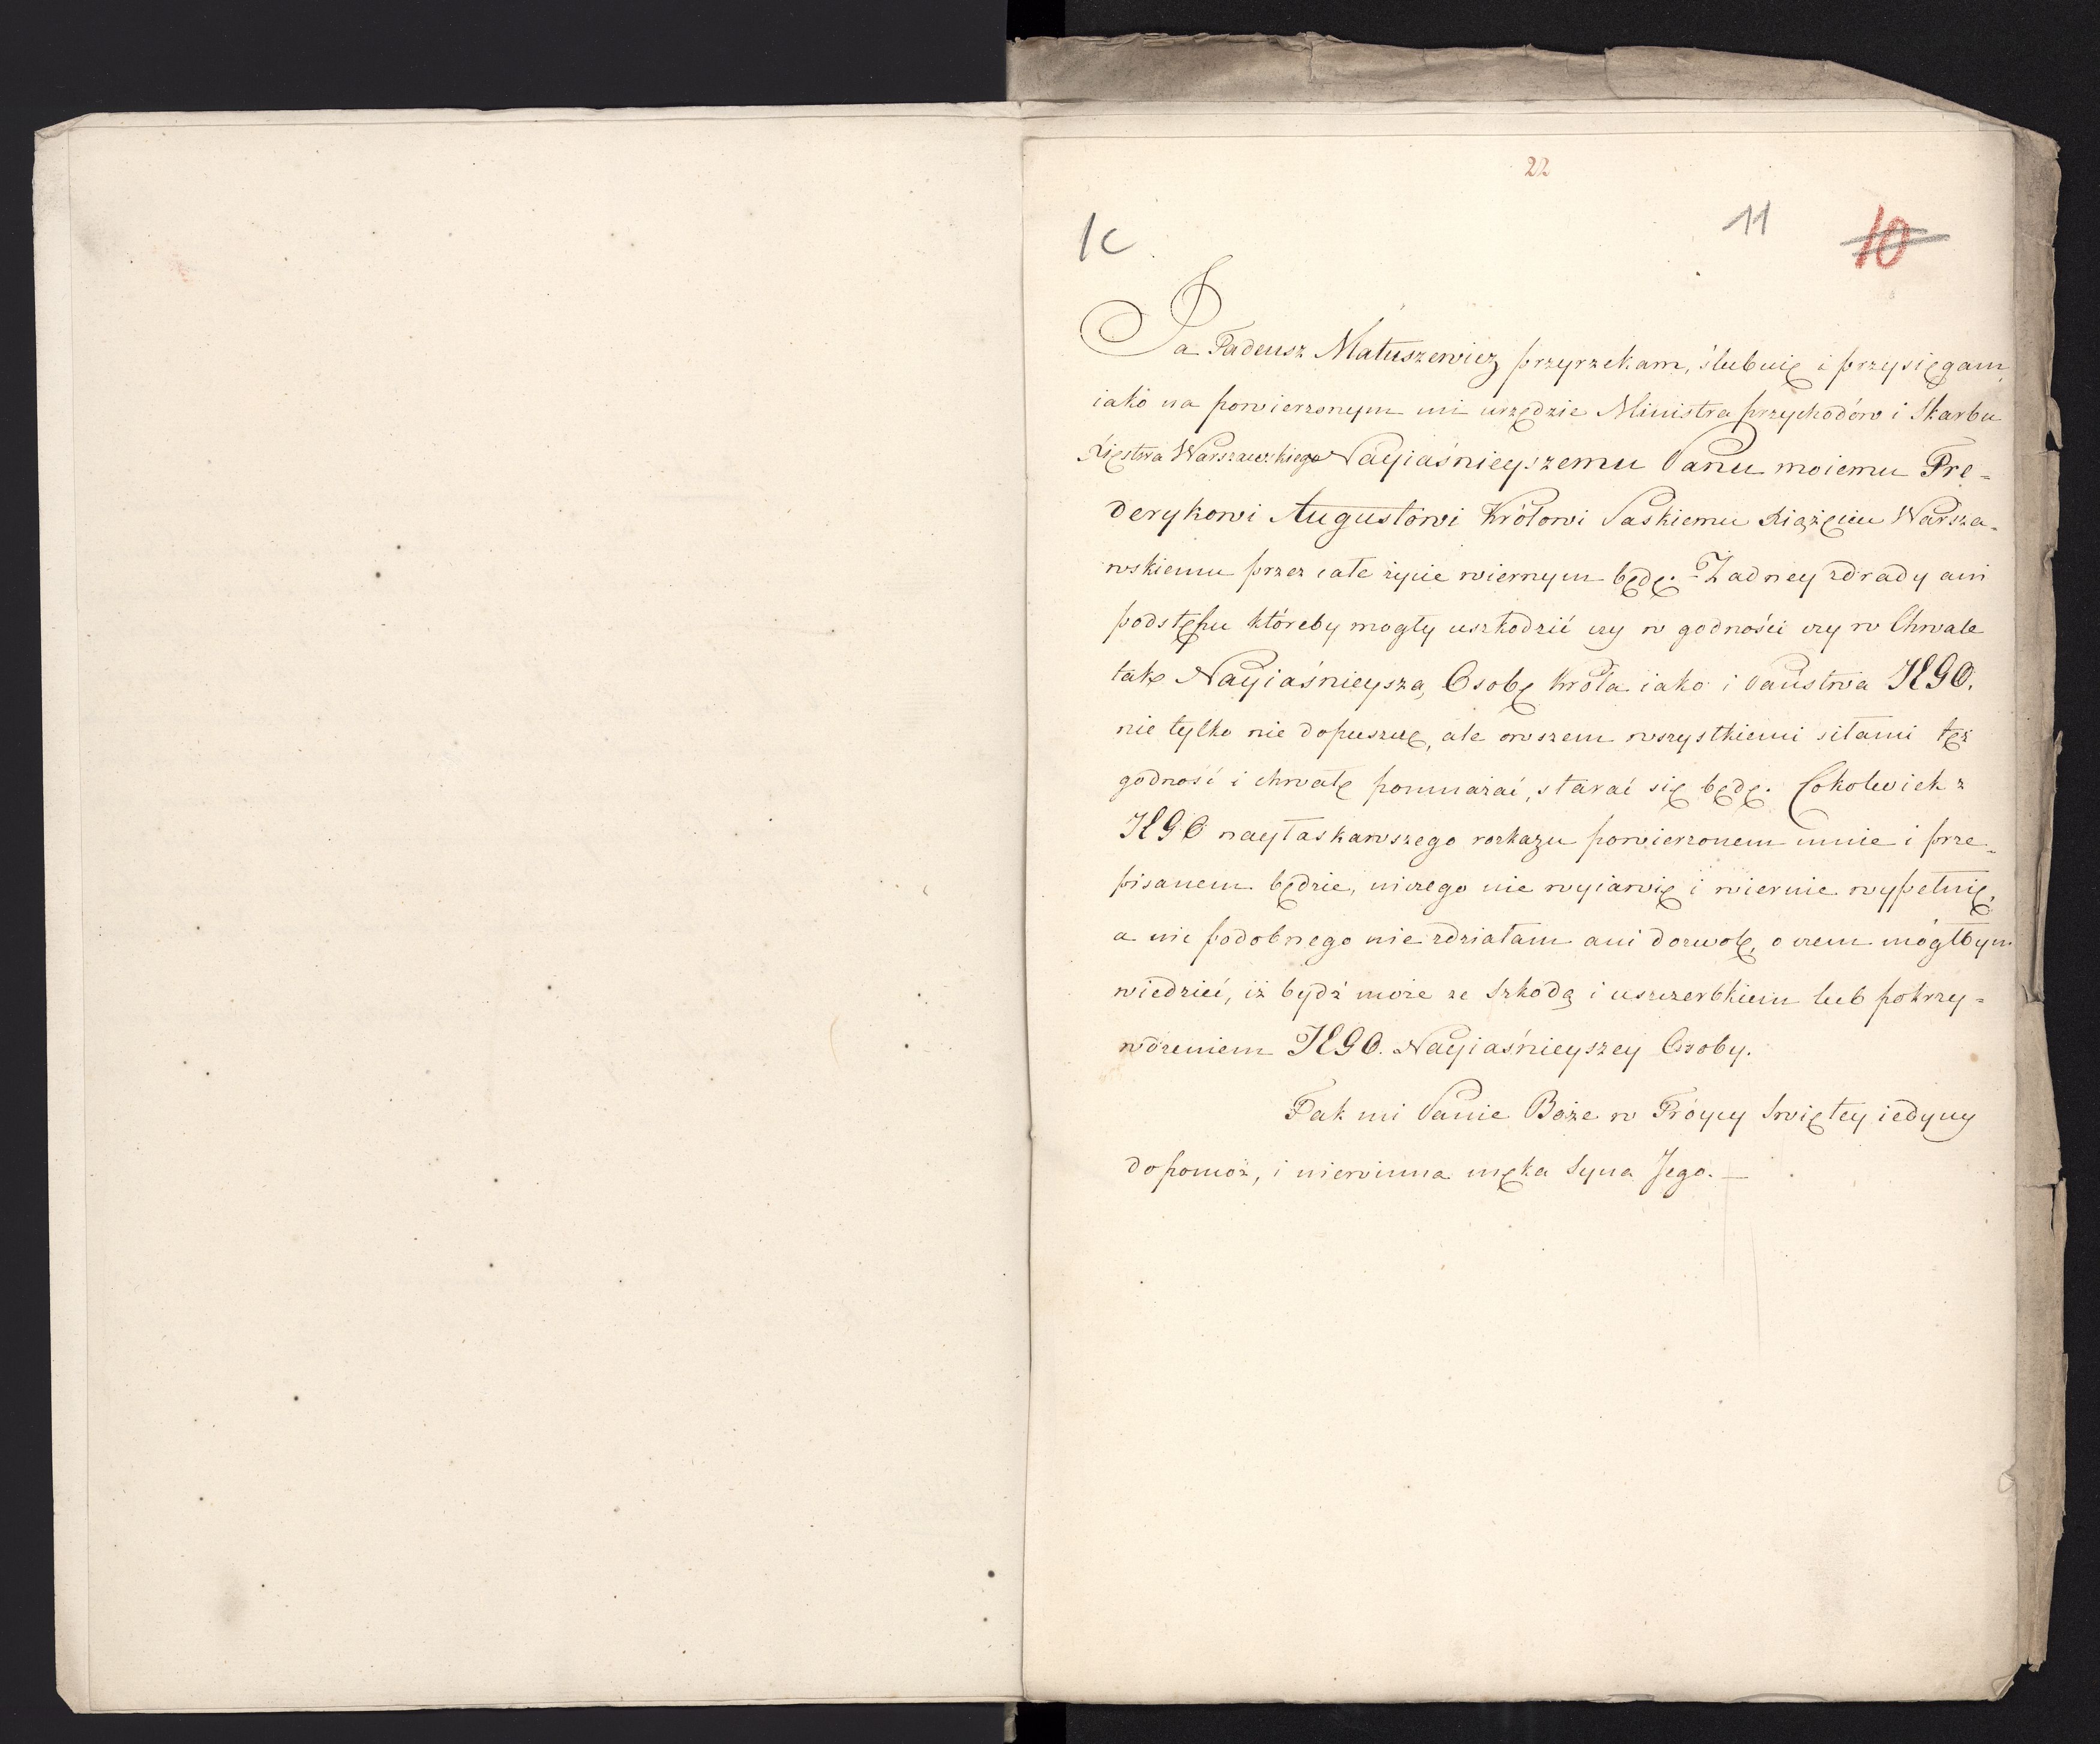 22
1c
11
10
Ja Tadeusz Matuszewicz przyrzekam, ślubuię i przysięgam,
iako na powierzonym mi urzędzie Ministra przychodów i Skarbu
Xięstwa Warszawskiego Nayiaśnieyszemu Panu moiemu Fre=
derykowi Augustowi Królowi Saskiemu Xiążęciu Warsza=
wskiemu przez całe życie wiernym będę. Żadney zdrady ani
podstępu któreby mogły uszkodzić czy w godności czy w Chwale
tak Nayiaśnieyszą Osobę Króla iako i Państwa JEGO.
nie tylko nie dopuszczę, ale owszem wszystkiemi siłami tęż
godność i chwałę pomnażać, starać się będę. Cokolwiek z
JEGO nayłaskawszego rozkazu powierzonem mnie i prze=
pisanem będzie, niczego nie wyiawię i wiernie wypełnię,
a nic podobnego nie zdziałam ani dozwolę, o czem mógłbym
wiedzieć, iż bydź może ze szkodą i uszczerbkiem lub pokrzy=
wdzeniem JEGO. Nayiaśnieyszey Osoby.
Tak mi Panie Boże w Tróycy Swiętey iedyny
dopomóż, i niewinna męka Syna Jego. —